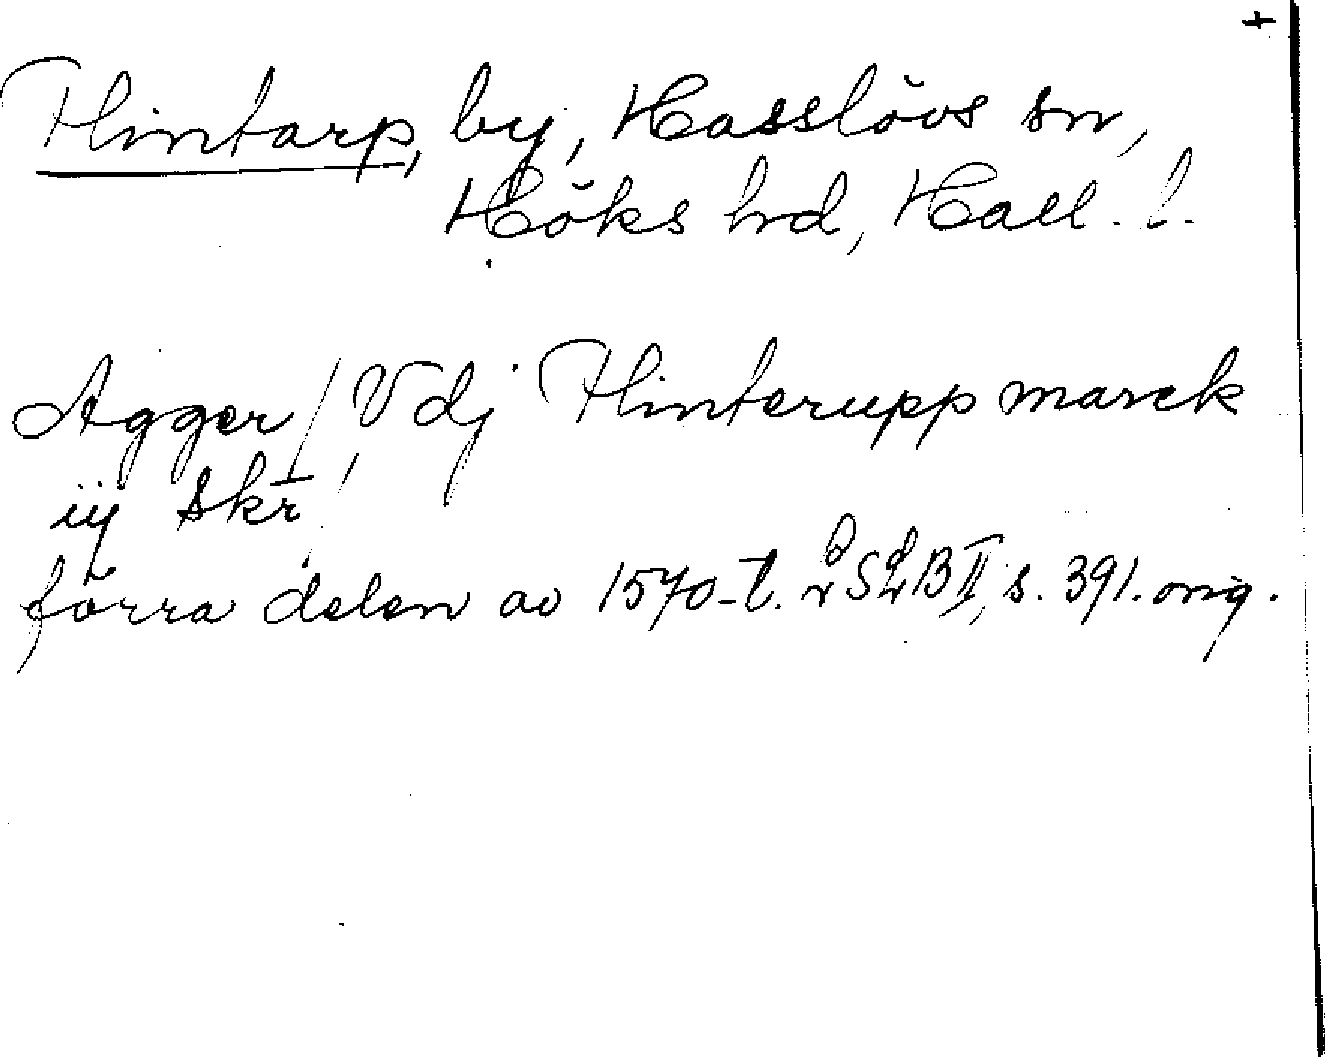 +
Hintarp, by, Hasslövs sn,
Höks hd, Hall. l.
Agger / Vdj Hinterupp marck
iij skr̄
förra delen av 1570-t. LSLB II, s. 391. orig.